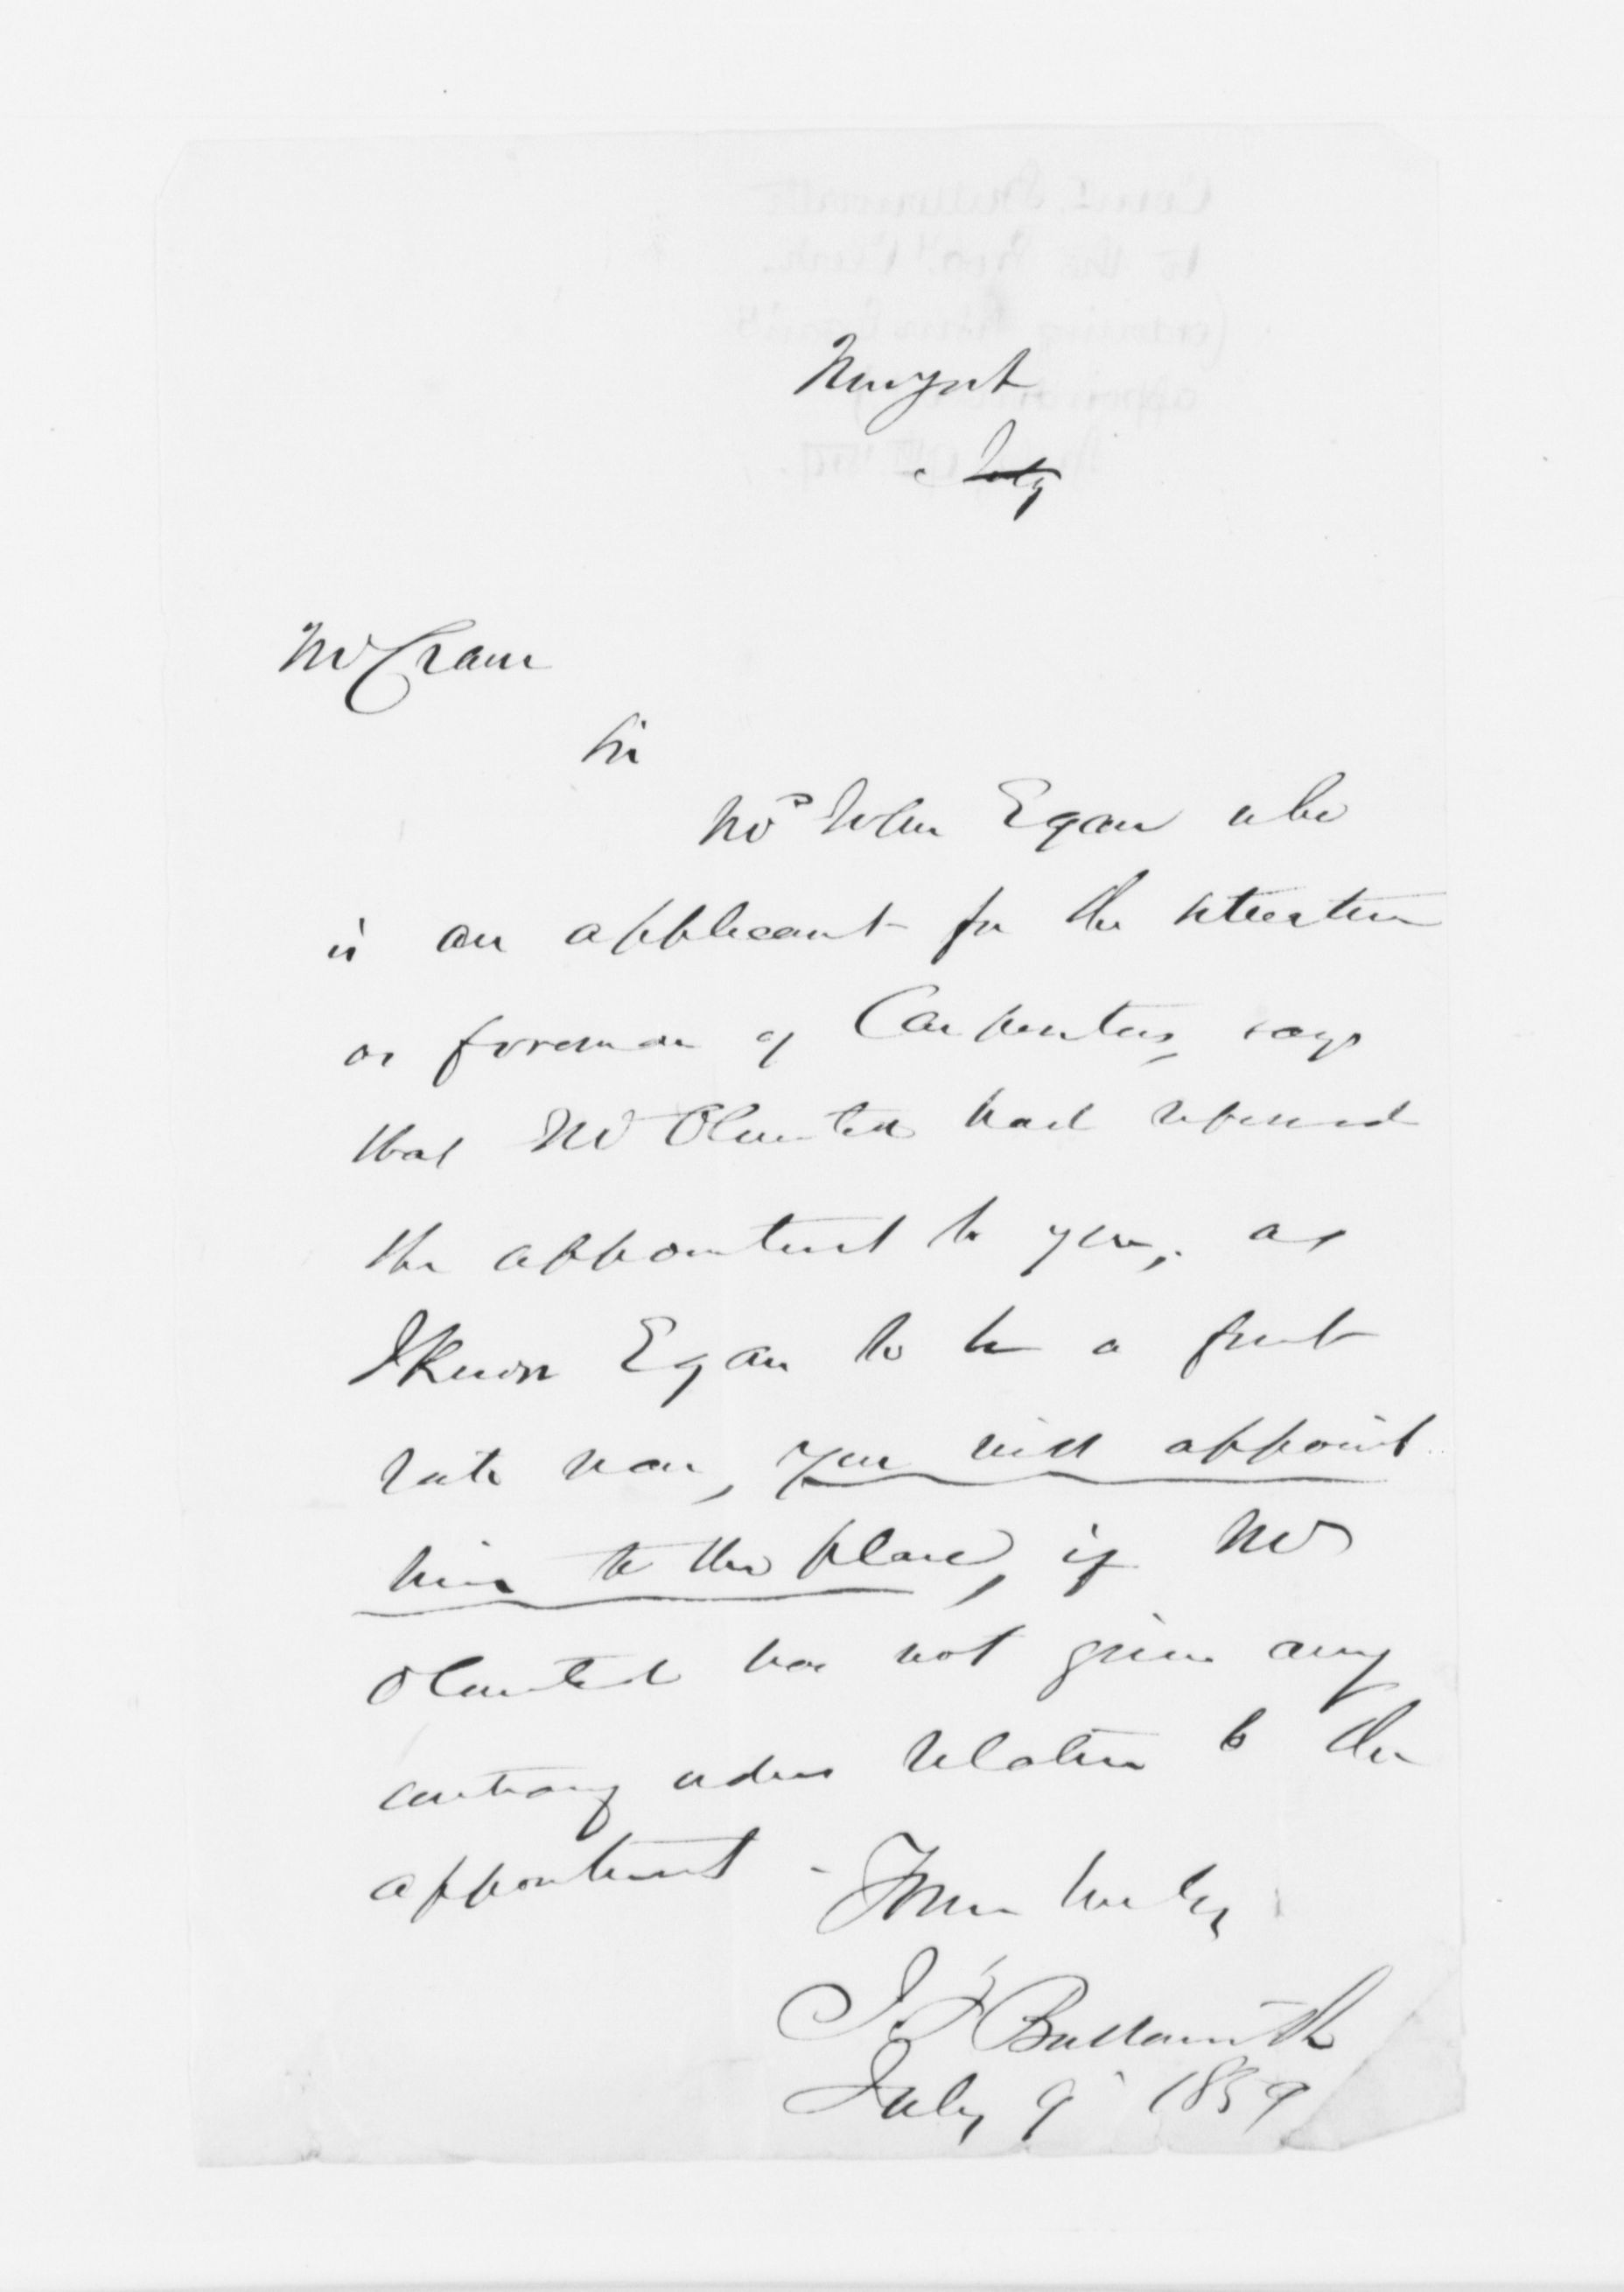 New York
July
Mr Crane
Sir
Mr John Egan who
is an applicant for the situation
as foreman of Carpenters, says
that Mr Olmsted had referred
the appointment to you, as
I know Egan to be a first
rate man, you will appoint
him to the place, if Mr
Olmsted has not given any
contrary orders relative to the
appointment - Yours truly
J. F Butterworth
July 9 1859